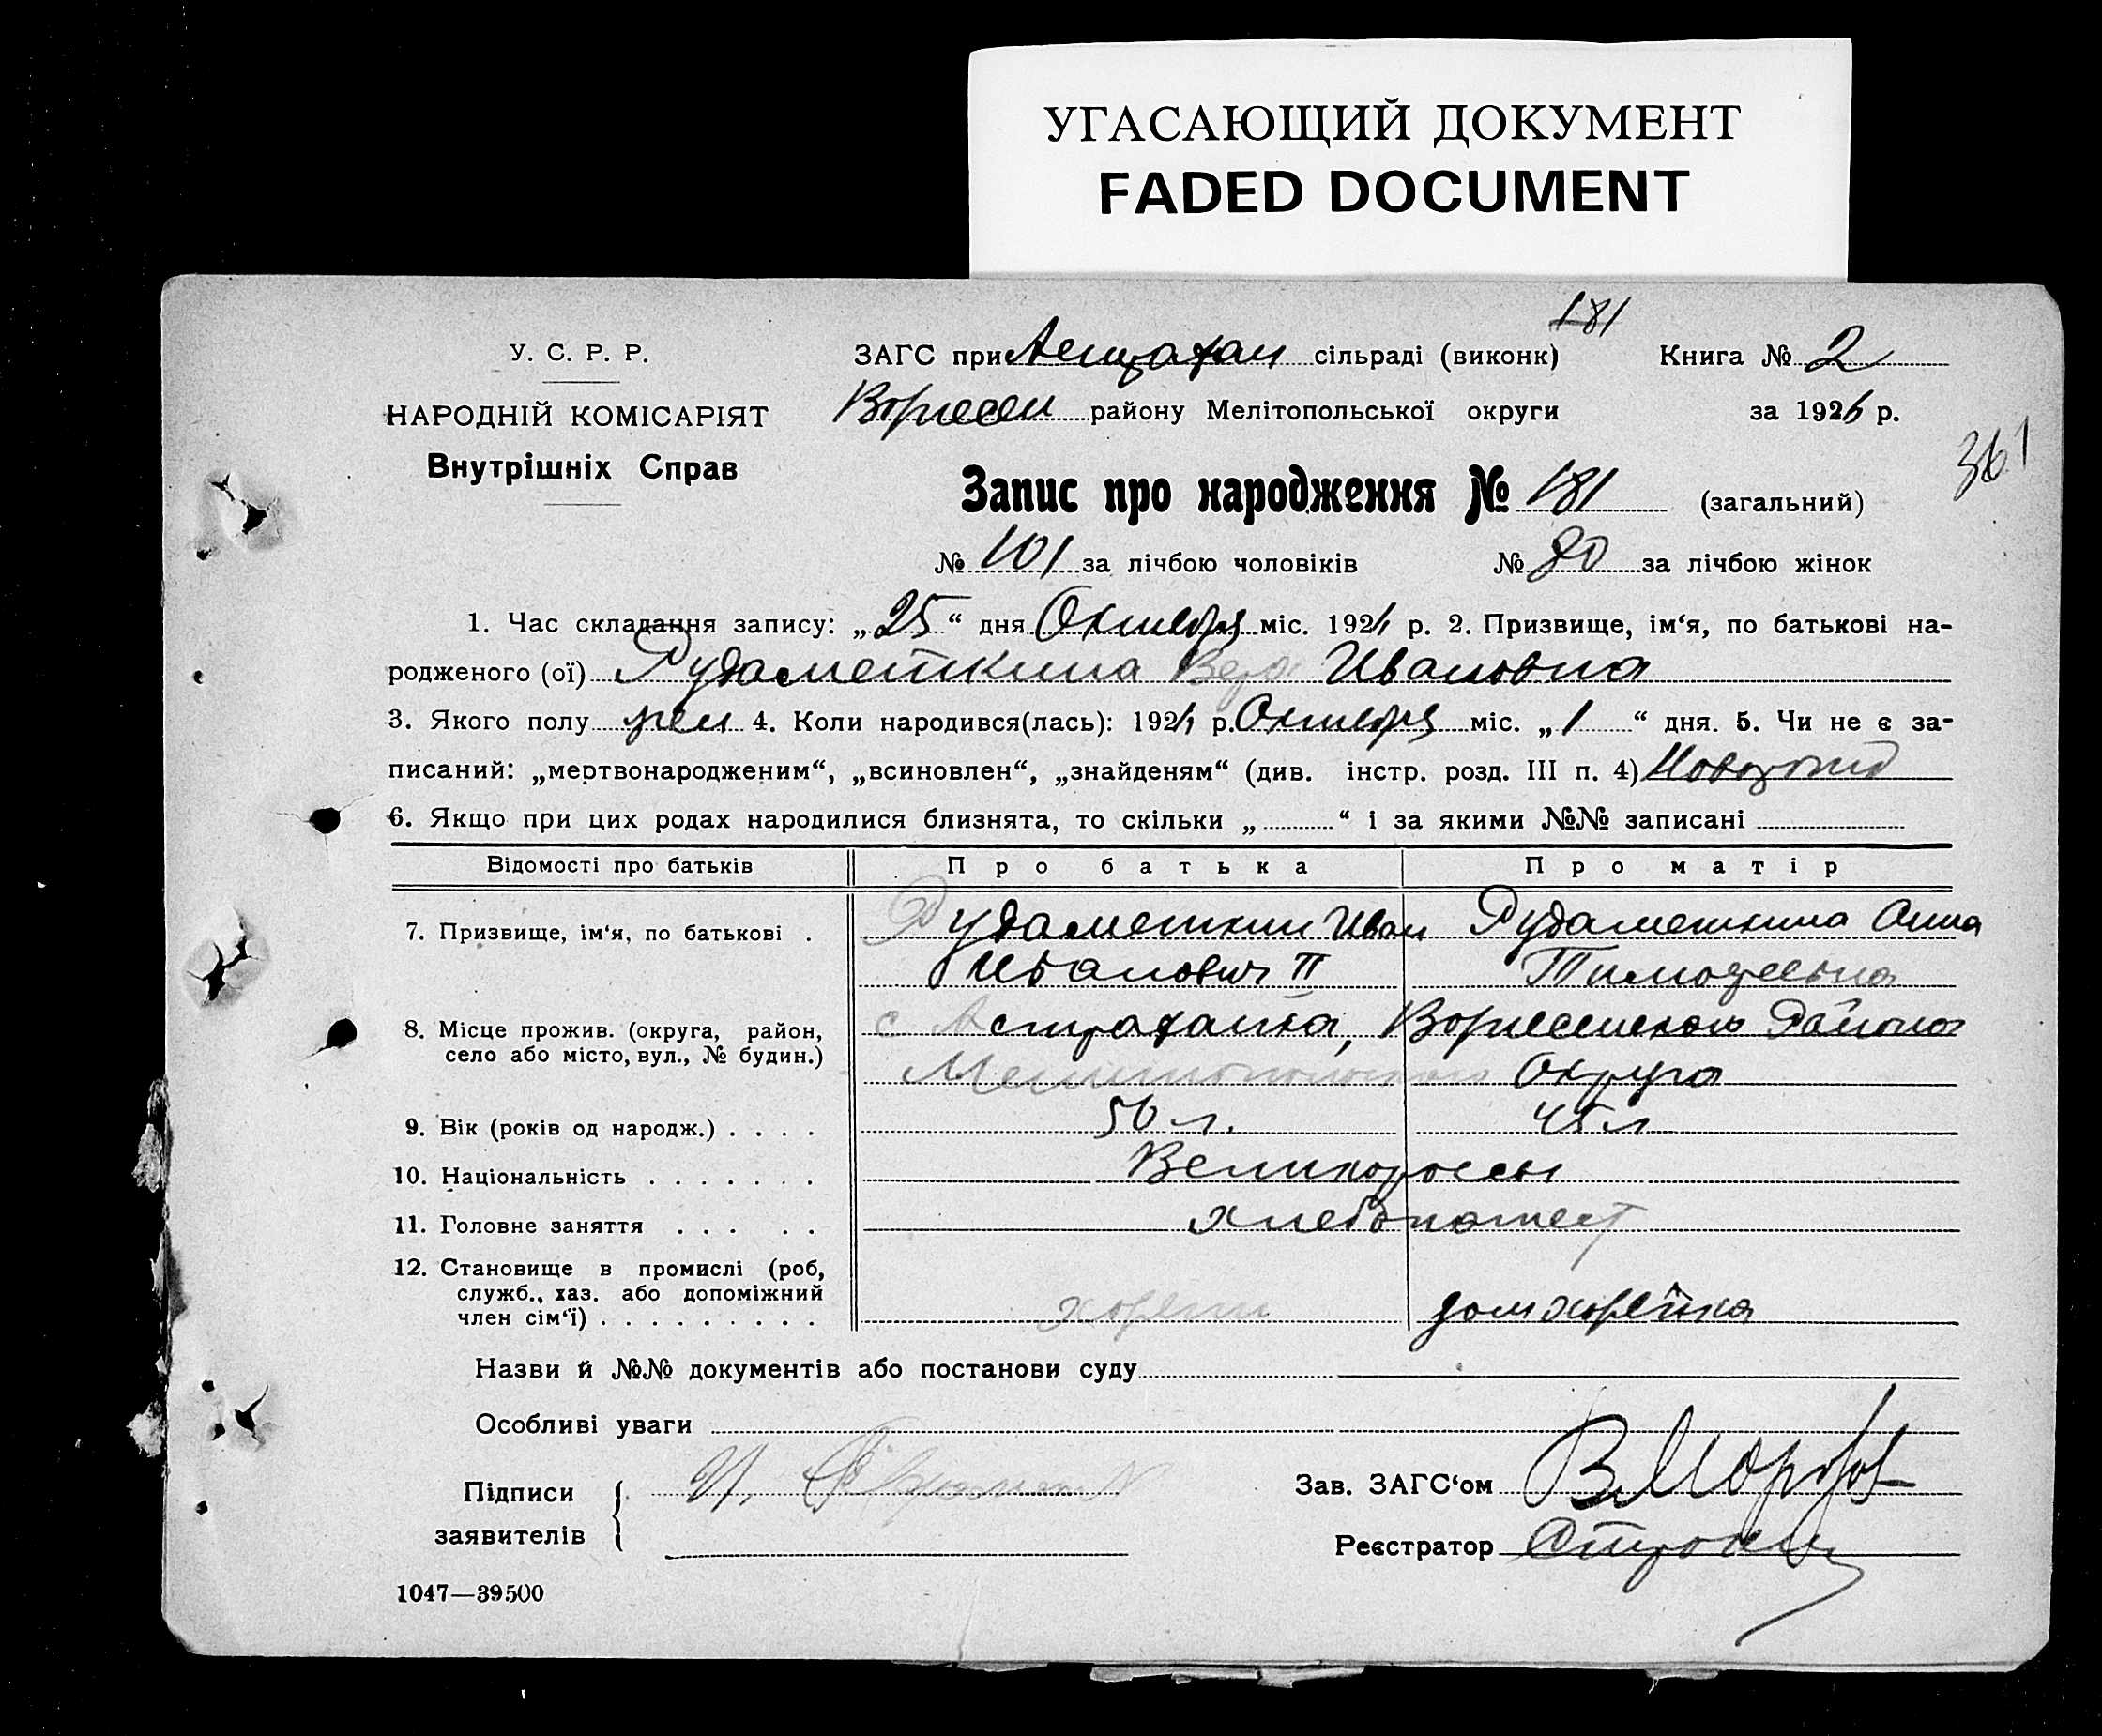 УГАСАЮЩИЙ ДОКУМЕНТ
FADED DOCUMENT
181
У. С. Р. Р.
ЗАГС при Астрахан сільраді (виконк)
Книга № 2
НАРОДНІЙ КОМІСАРІЯТ
району Мелітопольської округи
за 1926 р.
Внутрішніх Справ
361
Запис про народження № 181 (загальний)
№ 101 за лічбою чоловіків № 80 за лічбою жінок
1. Час складання запису: „25“ дня Октября міс. 192 р. 2. Призвище, ім‘я, по батькові на-
родженого (ої) Рудаметкина Вера Ивановна
3. Якого полу жен 4. Коли народився(лась): 192 р. Октября міс. „1“ дня. 5. Чи не є за-
писаний: „мертвонародженим“, „всиновлен“, „знайденям“ (див. інстр. розд. III п. 4)
6. Якщо при цих родах народилися близнята, то скільки „ “ і за якими №№ записані
Відомості про батьків Про батька Про матір
7. Призвище, ім‘я, по батькові . Рудаметкин Иван Рудаметкина Анна
Иванович II Тимофеевна
8. Місце прожив. (округа, район, с Астраханка, Района
село або місто, вул., № будин.) Мелитопольского Округа
9. Вік (років од народж.) . . . . 50 л. 45 л
10. Національність . . . . . . . Великороссы
11. Головне заняття . . . . . хлебопашест
12. Становище в промислі (роб,
служб., хаз. або допоміжний
член сім‘ї) . . . . . . . . . хозяин домхозяйка
Назви й №№ документів або постанови суду
Особливі уваги
Підписи И.
заявителів
Зав. ЗАГС‘ом В Морозов
Реєстратор
1047—39500